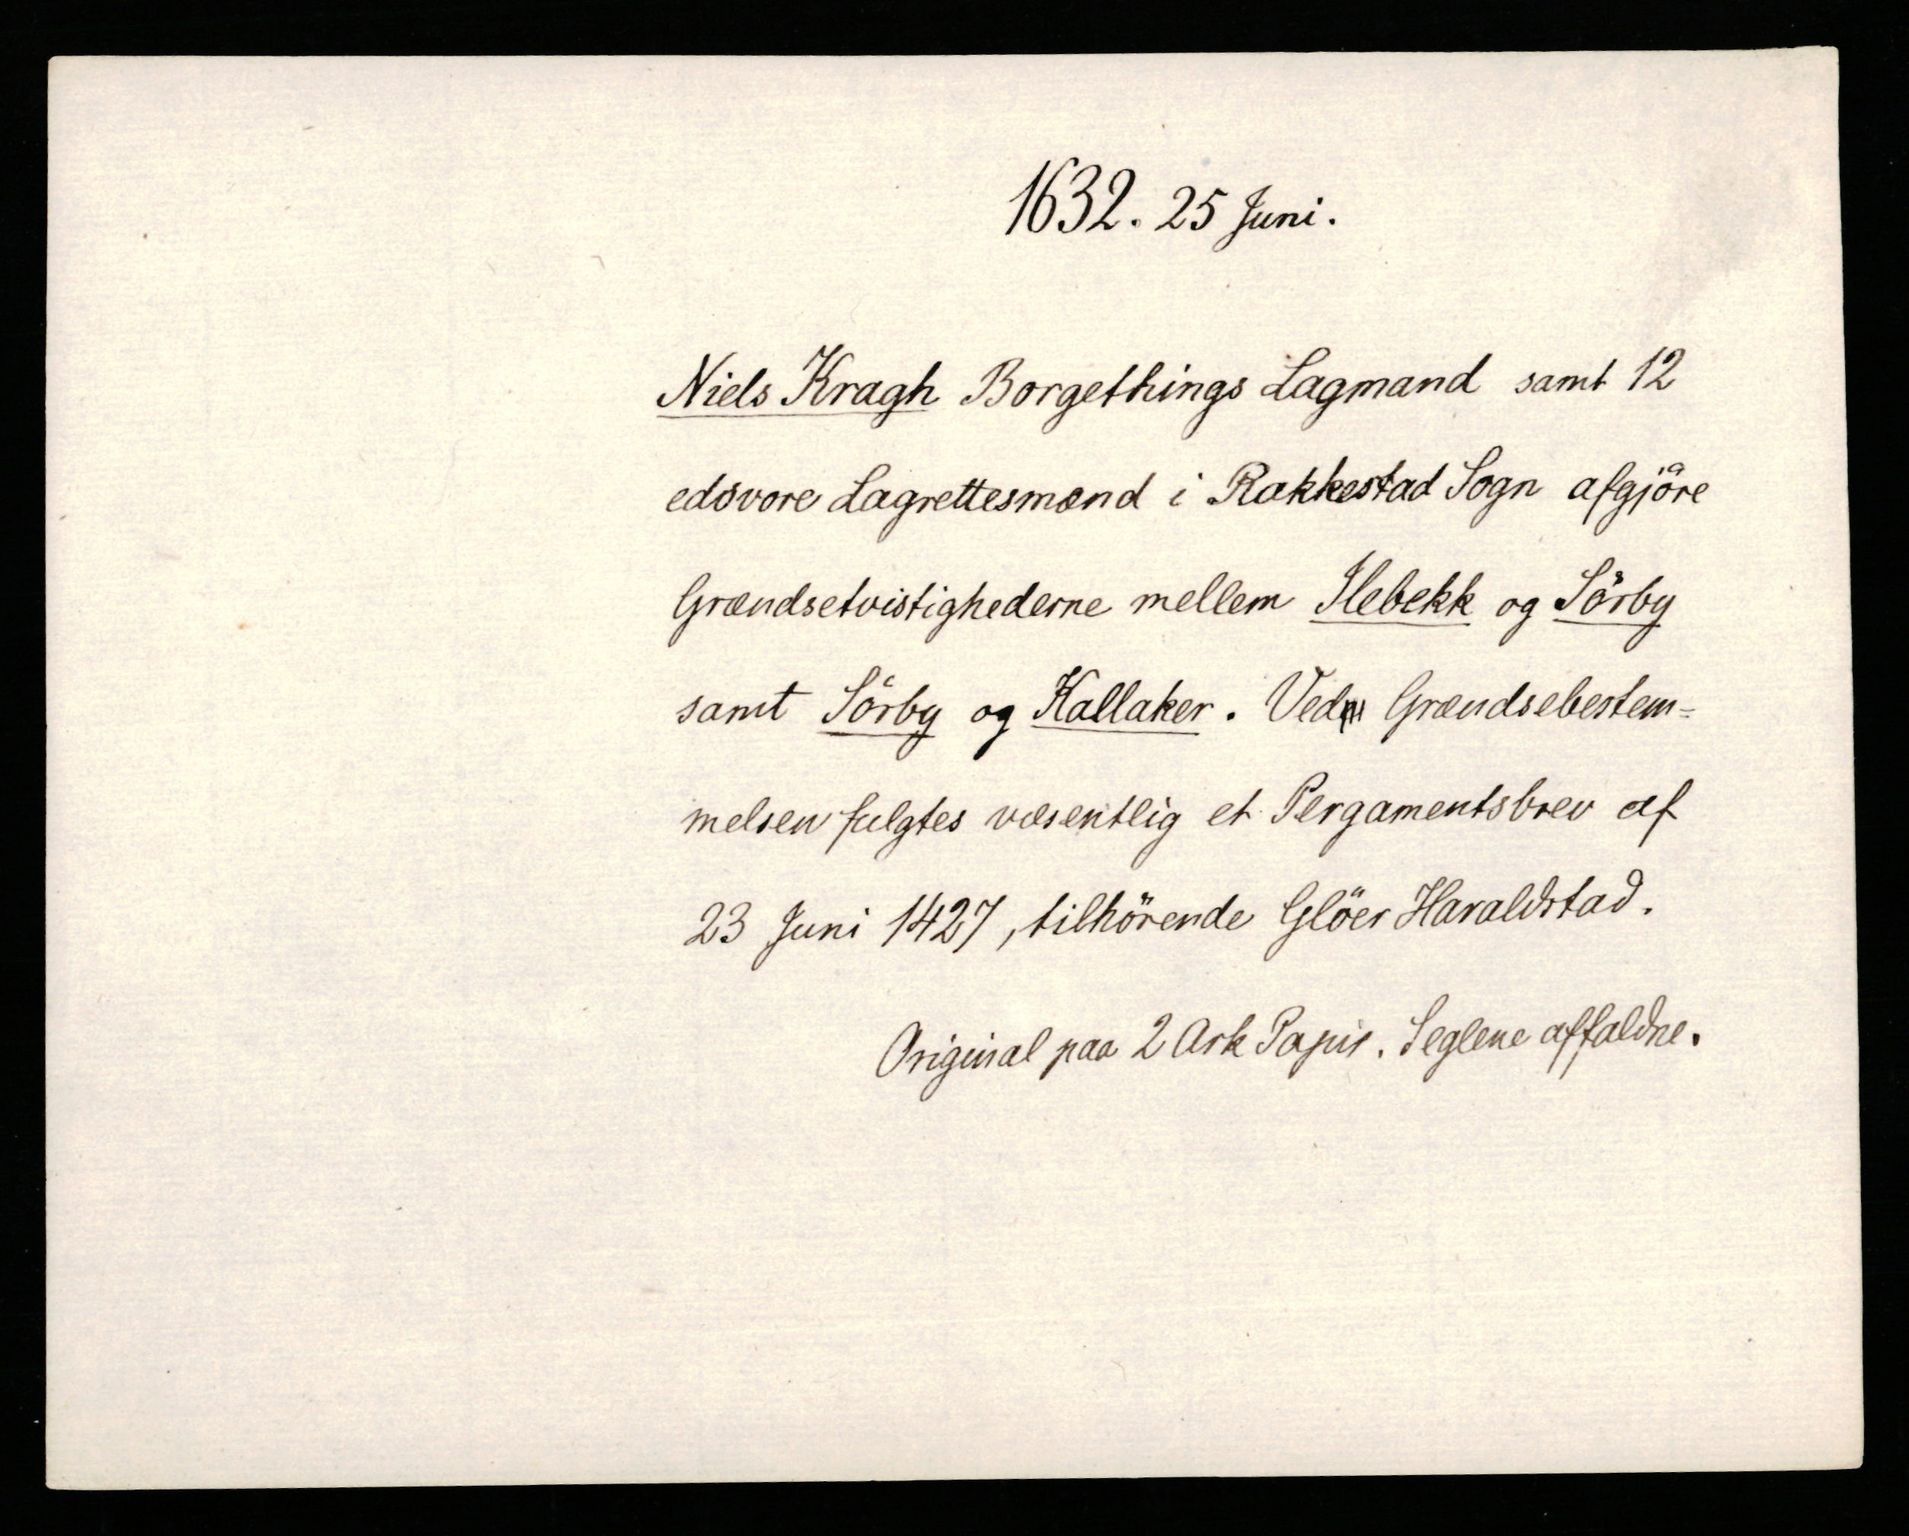 1632. 25 Juni.
Niels Kragh Borgethings Lagmand samt 12
edsvore Lagrettesmænd i Rakkestad Sogn afgjöre
Grændsetvistighederne mellem Ilebekk og Sörby
samt Sörby og Kallaker. Ved Grændsebestem-
melsen fulgtes væsentlig et Pergamentsbrev af
23 Juni 1427, tilhörende Glöer Haraldstad.
Original paa 2 Ark Papir. Seglene affaldne.